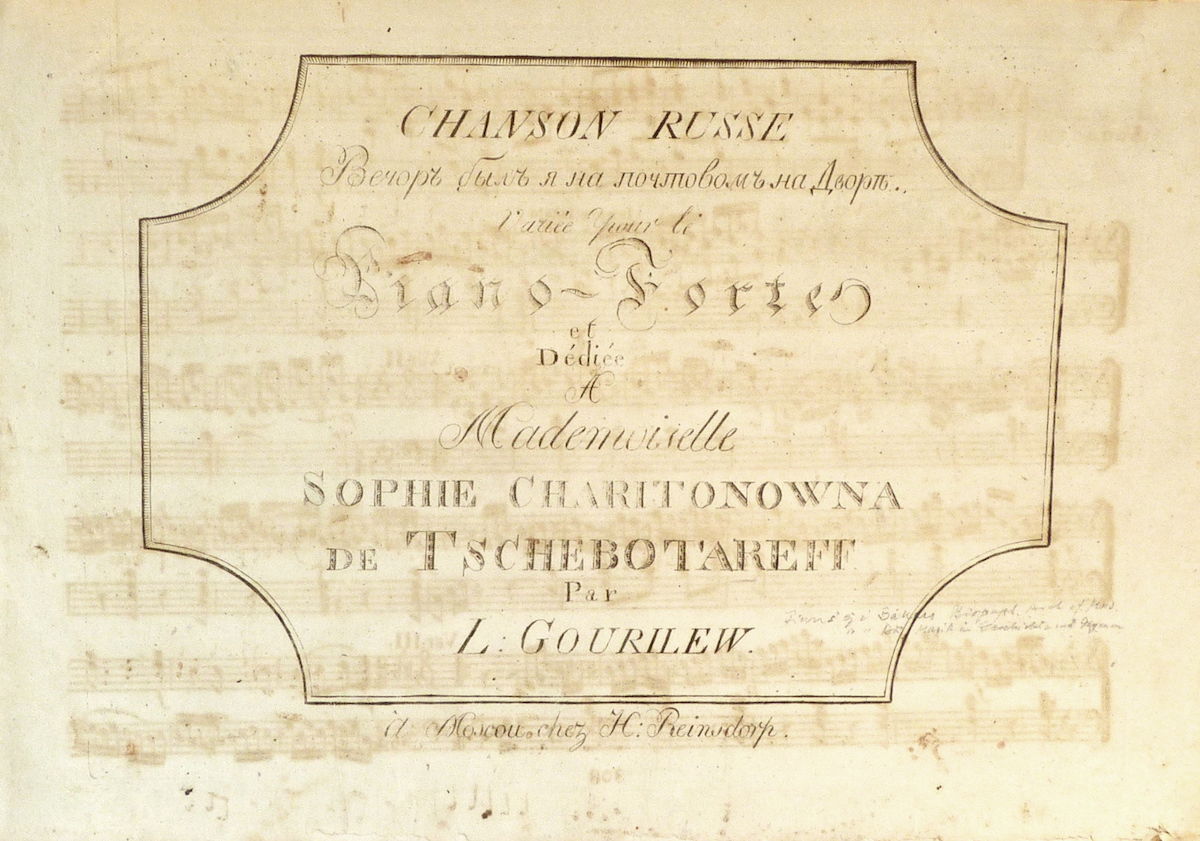 CHANSON RUSSE
Вечоръ былъ я на почтовомъ на Дворѣ..
Variée pour le
Piano-Forte
et
Dédiée
A
Mademoiselle
SOPHIE CHARITONOWNA
DE TSCHEBOTAREFF
Par
L: GOURILEW.
à Moscou chez H: Reinsdorp.